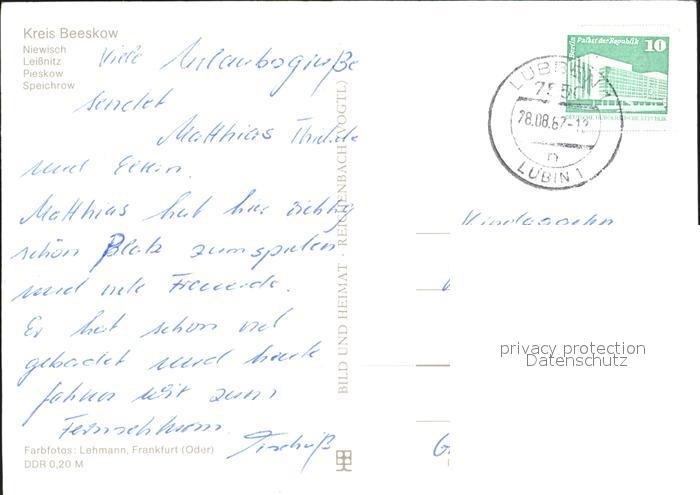 Kreis Beeskow
Niewisch
Leißnitz
Pieskow
Speichrow
Viele Urlaubsgrüße
sendet
Matthias
und Eltern.
Matthias hat hier richtig
schön Platz zum spielen
und viele Freunde.
Er hat schon viel
gebadet und heute
fahren wir zum
Fernsehturm.
Tschüß
Farbfotos: Lehmann, Frankfurt (Oder)
DDR 0,20 M
BILD UND HEIMAT · REICHENBACH (VOGTL)
Berlin Palast der Republik 10
LÜBBEN
28.08.87-12
n
LUBIN 1
privacy protection
Datenschutz